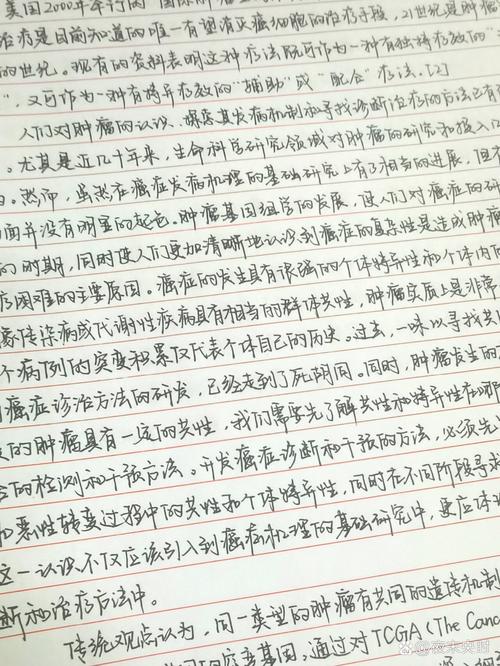 美国2000年举行的
治疗是目前知道的唯一有望消灭癌细胞的治疗手段,21世纪是肿瘤
的世纪。现有的资料表明这种疗法既可作为一种有独特疗效的"
",又可作为一种有特异疗效的"辅助"或"配合"疗法.[2]
人们对肿瘤的认识、探究其发病机制和寻找诊断治疗的方法已有
。尤其是近几十年来,生命科学研究领域对肿瘤的研究和投入
。然而,虽然在癌症发病机理的基础研究上有了相当的进展,但
面并没有明显的起色。肿瘤基因组学的发展,使人们对癌症的研
的时期,同时使人们更加清晰地认识到癌症的复杂性是造成肿瘤
疗困难的主要原因。癌症的发生具有很强的个体特异性和个体内
像传染病或代谢性疾病具有相当的群体共性,肿瘤实质上是非常
个病例的突变积累仅代表个体自己的历史。过去,一味以寻找共
癌症诊治方法的研发,已经走到了死胡同。同时,肿瘤发生的
的肿瘤具有一定的共性,我们需要先了解共性和特异性在哪
的检测和干预方法。开发癌症诊断和干预的方法,必须先
恶性转变过程中的共性和个体特异性,同时在不同阶段寻
这一认识不仅应该引入到癌症机理的基础研究中,更应体
断和治疗方法中。
传统观点认为,同一类型的肿瘤有共同的遗传机制
的癌变基因,通过对TCGA(The Canc